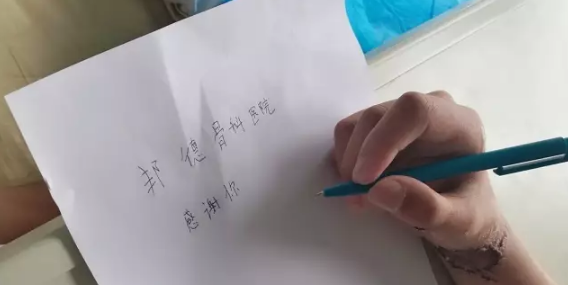 邦德骨科医院
感谢你